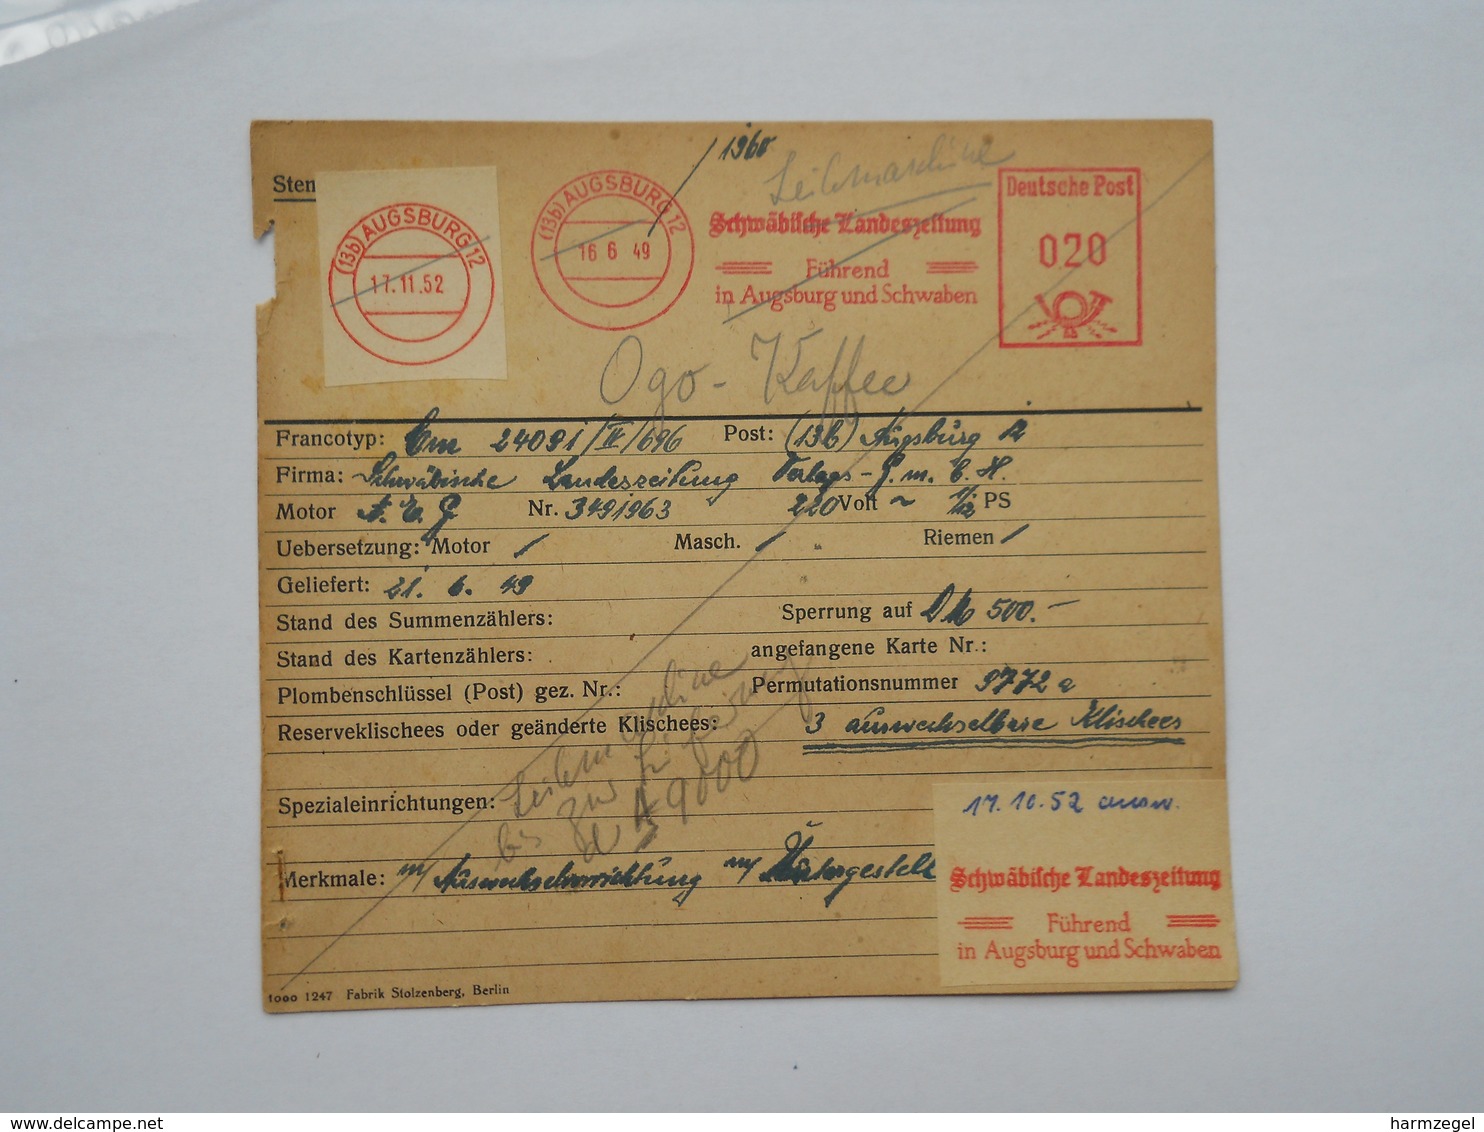 1960
Leihmaschine
Sten
(13b) AUGSBURG 12
17.11.52
(13b) AUGSBURG 12
16 6 49
Schwäbische Landeszeitung
Führend
in Augsburg und Schwaben
Deutsche Post
020
Ogo - Kaffee
Francotyp: Cm 24091/IV/696 Post: (13b) Augsburg 12
Firma: Schwäbische Landeszeitung Verlags-G.m.b.H.
Motor A.E.G Nr. 3491963 220 Volt ~ 1/12 PS
Uebersetzung: Motor / Masch. / " Riemen /
Geliefert: 21. 6. 49
Stand des Summenzählers: Sperrung auf DM 500.-
Stand des Kartenzählers: angefangene Karte Nr.:
Plombenschlüssel (Post) gez. Nr.: Permutationsnummer 9772a
Reserveklischees oder geänderte Klischees: 3 auswechselbare Klischees
Leihmaschine
bis zur Lieferung
9000
Spezialeinrichtungen:
17.10.52 ausw.
Merkmale: m/ Auswechselvorrichtung m/ Untergestell
Schwäbische Landeszeitung
Führend
in Augsburg und Schwaben
1000 1247 Fabrik Stolzenberg, Berlin
www.delcampe.net
harmzegel